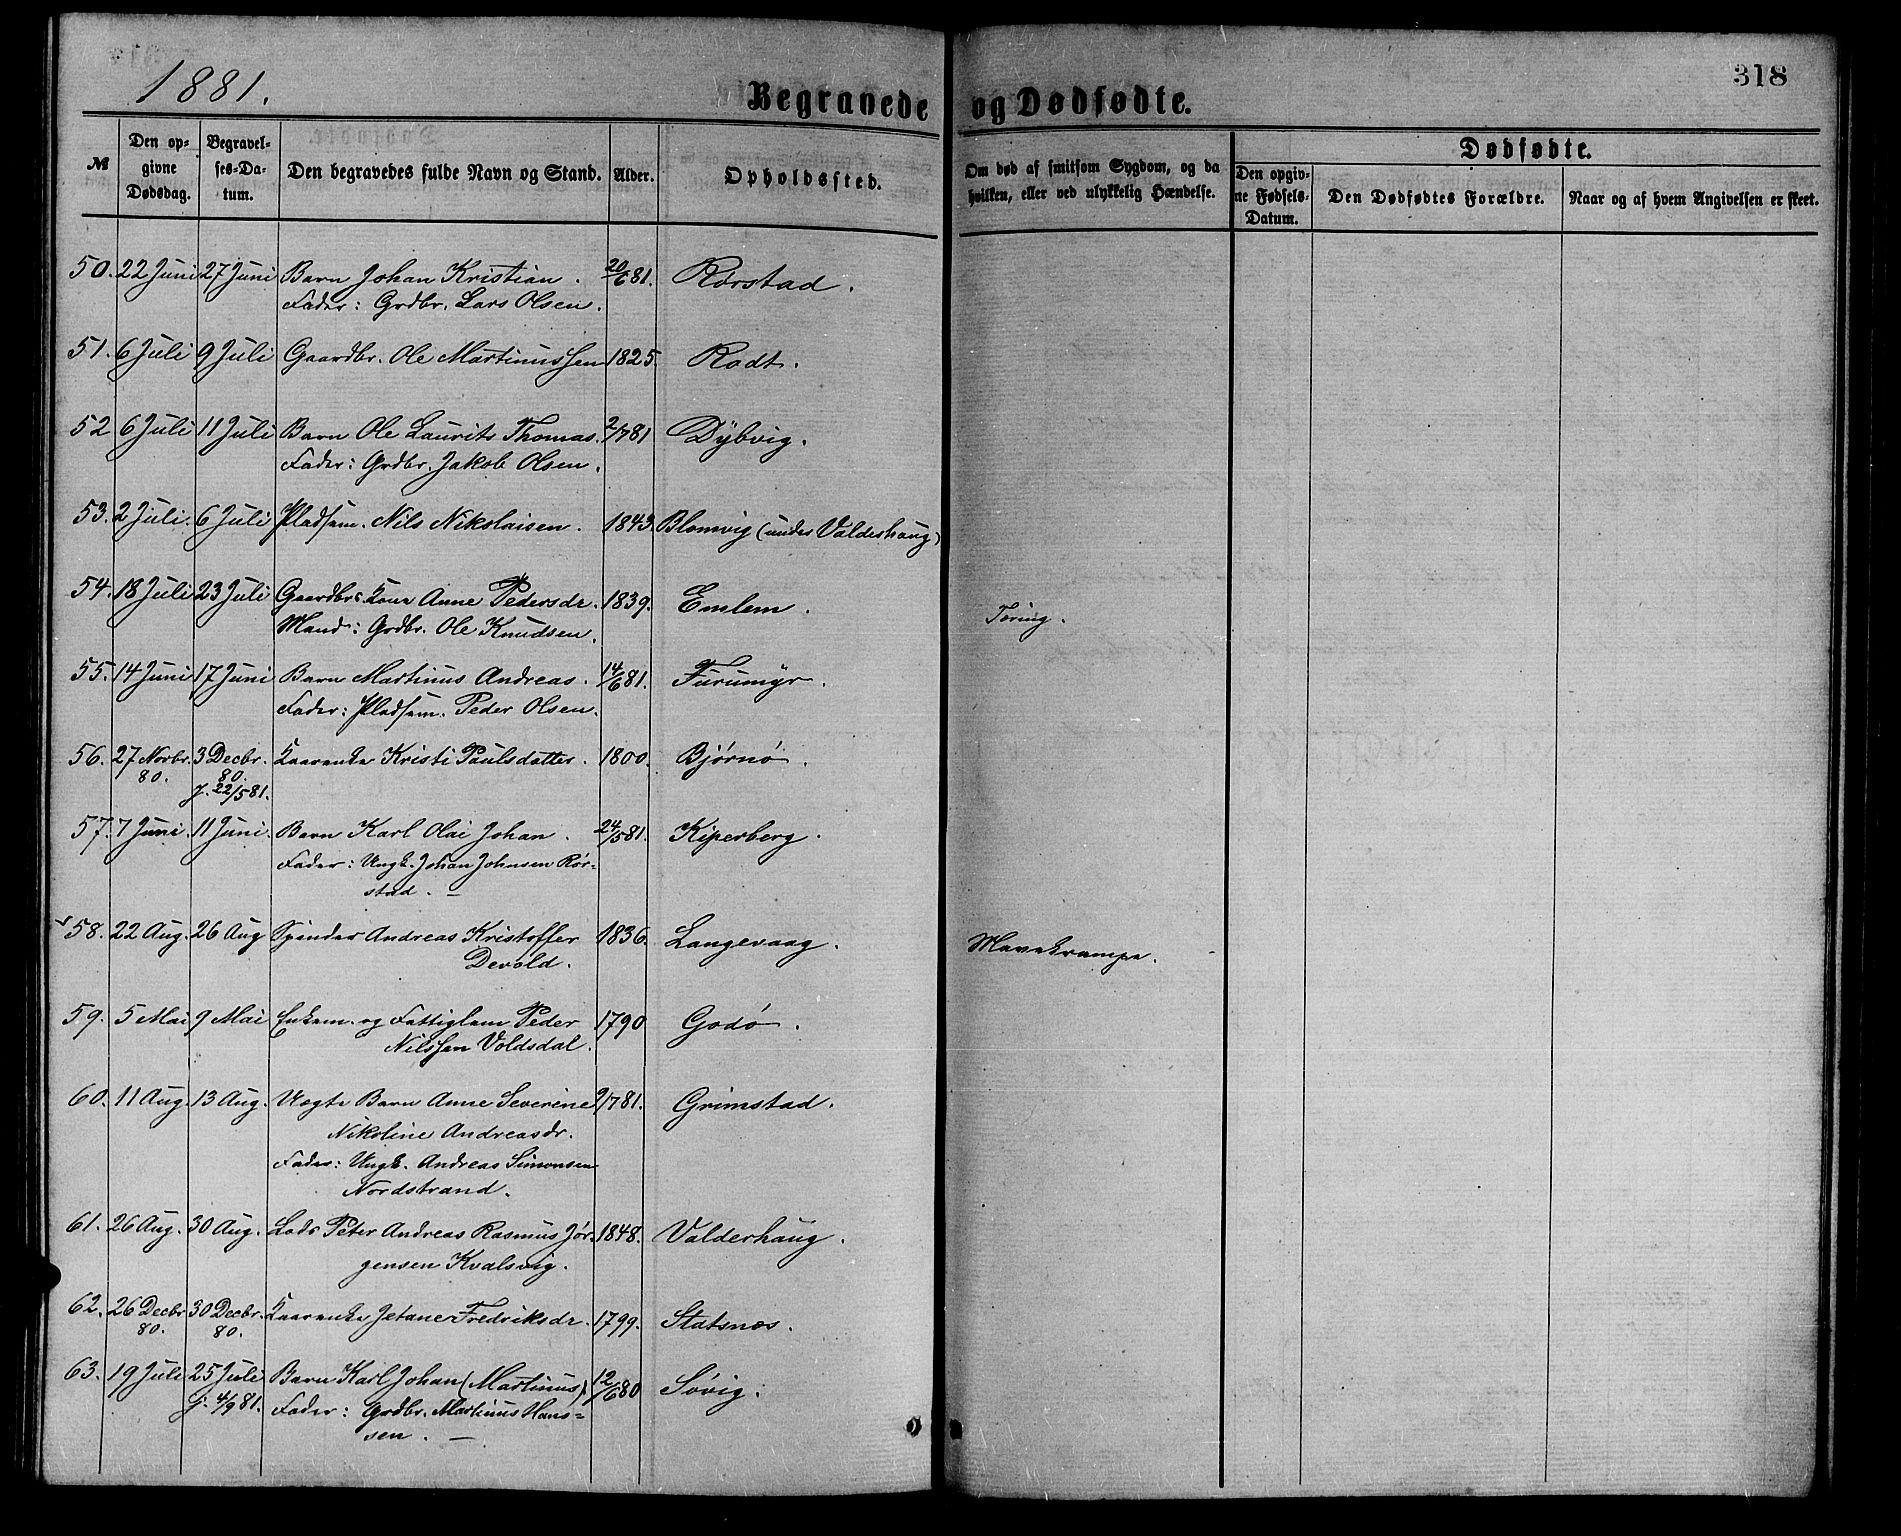 1881.
318
Begravede og Dødfødte.
№
Den op-
givne
Dødsdag.
Begravel-
ses-Da-
tum.
Den begravedes fulde Navn og Stand.
Alder.
Opholdssted.
Om død af smitsom Sygdom, og da
hvilken, eller ved ulykkelig Hændelse.
Dødfødte.
Den opgiv-
ne Fødsels-
Datum.
Den Dødfødtes Forældre.
Naar og af hvem Angivelsen er skeet.
50. 22 Juni 27 Juni Barn Johan Kristian. 20/6 81. Rørstad.
Fader: Grdbr. Lars Olsen.
51. 6 Juli 9 Juli Gaardbr. Ole Martinussen 1825. Rodt.
52 6 Juli 11 Juli Barn Ole Laurits Thomas. 2/7 81 Dybvig.
Fader: Grdbr. Jakob Olsen.
53. 2 Juli. 6 Juli Pladsem. Nils Nikolaisen. 1843. Blomvig (under Valdershaug)
54. 18 Juli 23 Juli Gaardbrs. Kone Anne Pedersdr. 1839. Emlem. Tæring.
Mand: Grdbr. Ole Knudsen.
55. 14 Juni 17 Juni Barn Martinus Andreas. 14/6 81. Furumyr.
Fader: Pladsem. Peder Olsen.
56. 27 Novbr. 3 Decbr. Kaarenke Kristi Paulsdatter. 1800. Bjørnø.
80. 80.
j. 22/5 81.
57. 7 Juni. 11 Juni. Barn Karl Olai Johan. 24/5 81. Kiperberg.
Fader: Ungk. Johan Johnsen Rør-
stad. —
58. 22 Aug. 26 Aug Spinder Andreas Kristoffer 1836. Langevaag. Mavekrampe.
Devold.
59. 5 Mai 9 Mai Enkem. og Fattiglem Peder 1790 Godø.
Nilssen Voldsdal.
60. 11 Aug. 13 Aug. Uægte Barn Anne Severine 9/7 81. Grimstad.
Nikoline Andreasdr.
Fader: Ungk. Andreas Simonsen
Nordstrand.
61. 26 Aug. 30 Aug. Lods Peter Andreas Rasmus Jør- 1848. Valderhaug.
gensen Kvalsvig.
62. 26 Decbr 30 Decbr. Kaarenke Jetane Fredriksdr. 1799. Statsnæs.
80. 80.
63. 19 Juli 25 Juli Barn Karl Johan (Martinus) 12/6 80 Søvig.
j. 4/9 81. Fader: Grdbr. Martinus Hans-
sen. —